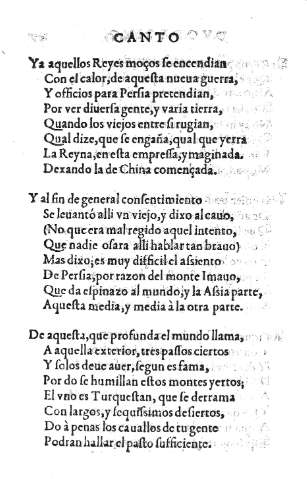 CANTO
Ya aquellos Reyes moços se encendian
Con el calor, de aquesta nueua guerra,
Y officios para Persia pretendian,
Por ver diuersa gente, y varia tierra,
Quando los viejos entre si rugian,
Qual dize, que se engaña, qual que yerra
La Reyna, en esta empressa, ymaginada.
Dexando la de China començada.
Y al fin de general consentimiento
Se leuantó alli vn viejo, y dixo al cabo,
(No que era mal regido aquel intento,
Que nadie osara alli hablar tan brauo)
Mas dixo; es muy difficil el assiento
De Persia; por razon del monte Imauo,
Que da espinazo al mundo; y la Assia parte,
Aquesta media, y media à la otra parte.
De aquesta, que profunda el mundo llama,
A aquella exterior, tres passos ciertos
Y solos deue auer, segun es fama,
Por do se humillan estos montes yertos;
El vno es Turquestan, que se derrama
Con largos, y sequissimos desiertos,
Do à penas los cauallos de tu gente
Podran hallar el pasto sufficiente.